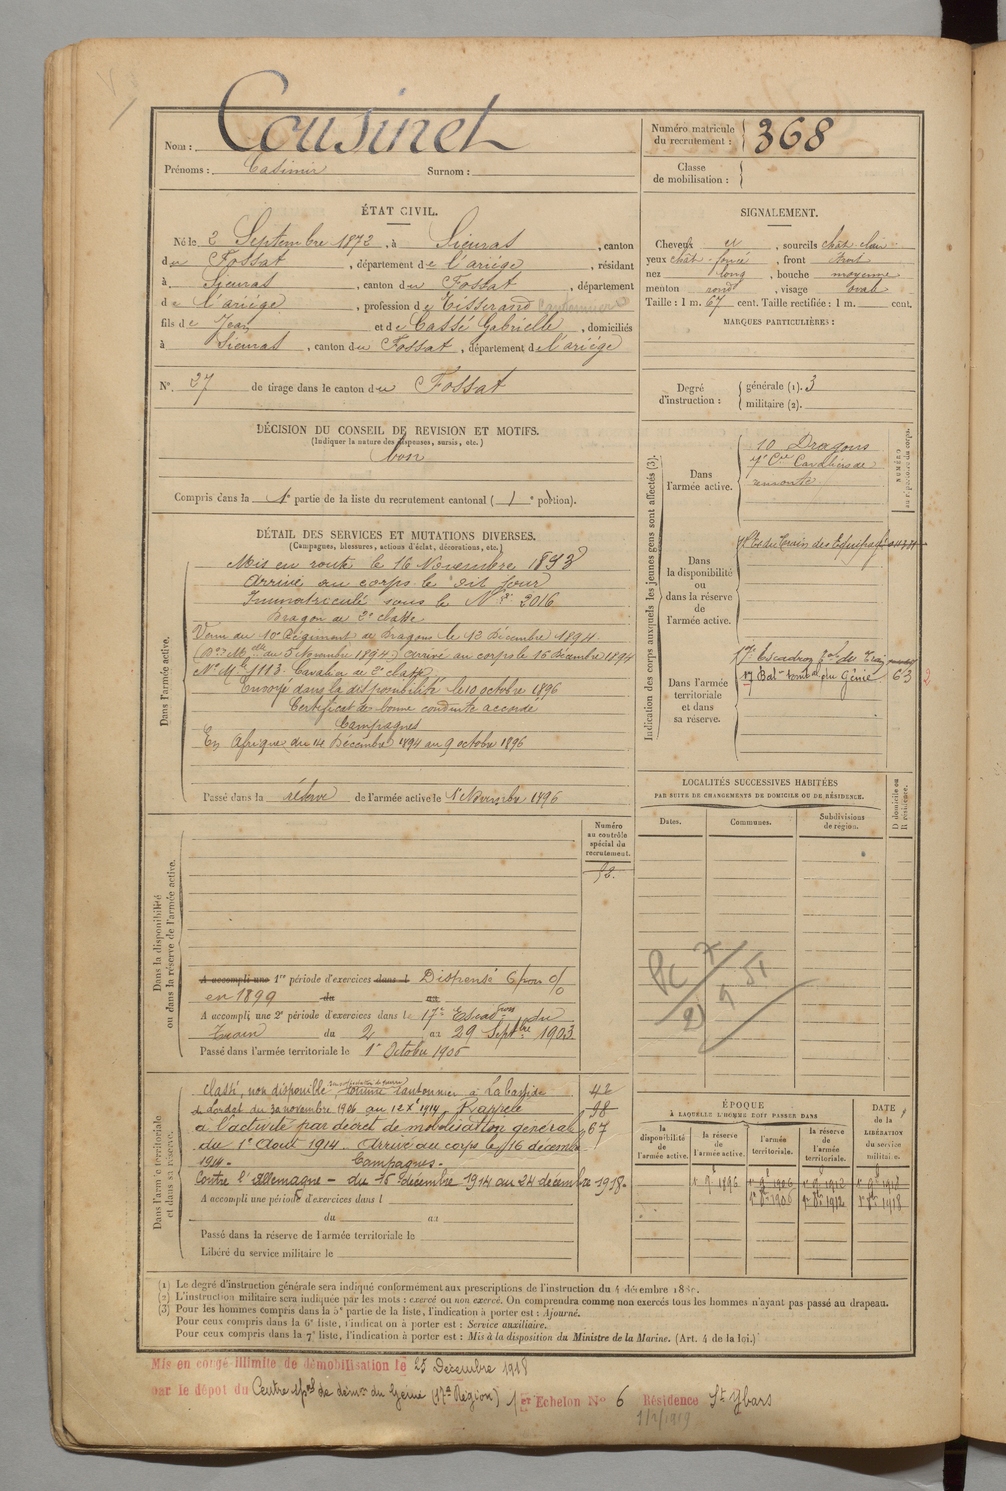 Nom : Cousinet
Prénoms : Casimir Surnom :
Numéro matricule du recrutement : 368
Classe de mobilisation :
ÉTAT CIVIL.
Né le 2 Septembre 1872, à Sieuras, canton
du Fossat, département de l'ariége, résidant
à Sieuras, canton du Fossat, département
de l'ariége, profession de Tisserand cantonnier
fils de Jean et de Cassé Gabrielle, domiciliés
à Sieuras, canton du Fossat, département de l'ariége
N°. 37 de tirage dans le canton du Fossat
SIGNALEMENT.
Cheveux , sourcils chât clair
yeux chât. foncé, front étroit
nez long, bouche moyenne
menton rond, visage Ovale
Taille : 1 m. 67 cent. Taille rectifiée : 1 m. cent.
MARQUES PARTICULIÈRES :
Degré d'instruction : générale (1). 3
militaire (2).
DÉCISION DU CONSEIL DE REVISION ET MOTIFS.
(Indiquer la nature des dispenses, sursis, etc.)
bon
Compris dans la 1e partie de la liste du recrutement cantonal ( 1 e portion).
DÉTAIL DES SERVICES ET MUTATIONS DIVERSES.
(Campagnes, blessures, actions d'éclat, décorations, etc.)
Dans l'armée active.
Mis en route le 16 Novembre 1893
Arrivé au corps le dit jour
Immatriculé sous le N° 2016
Dragon de 2e classe
Venu du 10e Régiment de Dragons le 13 Décembre 1894
du 5 Novembre 1894) arrivé au corps le 16 Décembre 1894
N° Mle 1113. Cavalier de 2e classe
Envoyé dans la disponibilité le 10 octobre 1896
Certificat de bonne conduite accordé
Campagnes
En Afrique du 14 Décembre 1894 au 9 octobre 1896
Passé dans la réserve de l'armée active le 1er Novembre 1896
Indication des corps auxquels les jeunes gens sont affectés (3).
NUMÉRO au répertoire du corps.
Dans l'armée active.
10 Dragons
7e Cie Cavaliers de
remonte
Dans la disponibilité ou dans la réserve de l'armée active.
du Train des Equipages
Dans l'armée territoriale et dans sa réserve.
17e Escadron du Train
17 Bat du Génie 63 2
LOCALITÉS SUCCESSIVES HABITÉES
PAR SUITE DE CHANGEMENTS DE DOMICILE OU DE RÉSIDENCE.
Dates. Communes. Subdivisions de région. D domicile ou R résidence.
Dans la disponibilité ou dans la réserve de l'armée active.
Numéro au contrôle spécial du recrutement.
A accompli une 1re période d'exercices dans l Dispensé
en 1899 du au
A accompli une 2e période d'exercices dans le 17e Escadron du
Train du 2 au 29 Septbre 1903
Passé dans l'armée territoriale le 1er Octobre 1906
Dans l'armée territoriale et dans sa réserve.
Classé non disponible cantonnier à Labastide 42
de Lordat du 30 novembre 1906 au 12 X 1914. Rappelé 98
à l'activité par décret de mobilisation générale 67
du 1er Août 1914. Arrivé au corps le 16 décembre
1914. Campagnes.
Contre l'Allemagne - du 16 décembre 1914 au 24 décembre 1918.
A accompli une période d'exercices dans l
du au
Passé dans la réserve de l'armée territoriale le
Libéré du service militaire le
ÉPOQUE
à LAQUELLE L'HOMME DOIT PASSER DANS
la disponibilité de l'armée active. la réserve de l'armée active. l'armée territoriale. la réserve de l'armée territoriale.
DATE de la LIBÉRATION du service militaire.
1er 9 1896 1er 9 1906 1er 9 1912 1er 9 1912
1er 8bre 1906 1er 8bre 1912 1er 8bre 1918
(1) Le degré d'instruction générale sera indiqué conformément aux prescriptions de l'instruction du 4 décembre 188 .
(2) L'instruction militaire sera indiquée par les mots : exercé ou non exercé. On comprendra comme non exercés tous les hommes n'ayant pas passé au drapeau.
(3) Pour les hommes compris dans la 5e partie de la liste, l'indication à porter est : Ajourné.
Pour ceux compris dans la 6e liste, l'indication à porter est : Service auxiliaire.
Pour ceux compris dans la 7e liste, l'indication à porter est : Mis à la disposition du Ministre de la Marine. (Art. 4 de la loi.)
Mis en congé illimité de démobilisation le 25 Decembre 1918
par le dépot du Centre de dém du Génie (17e Région) 1er Echelon N° 6 Résidence St Ybars